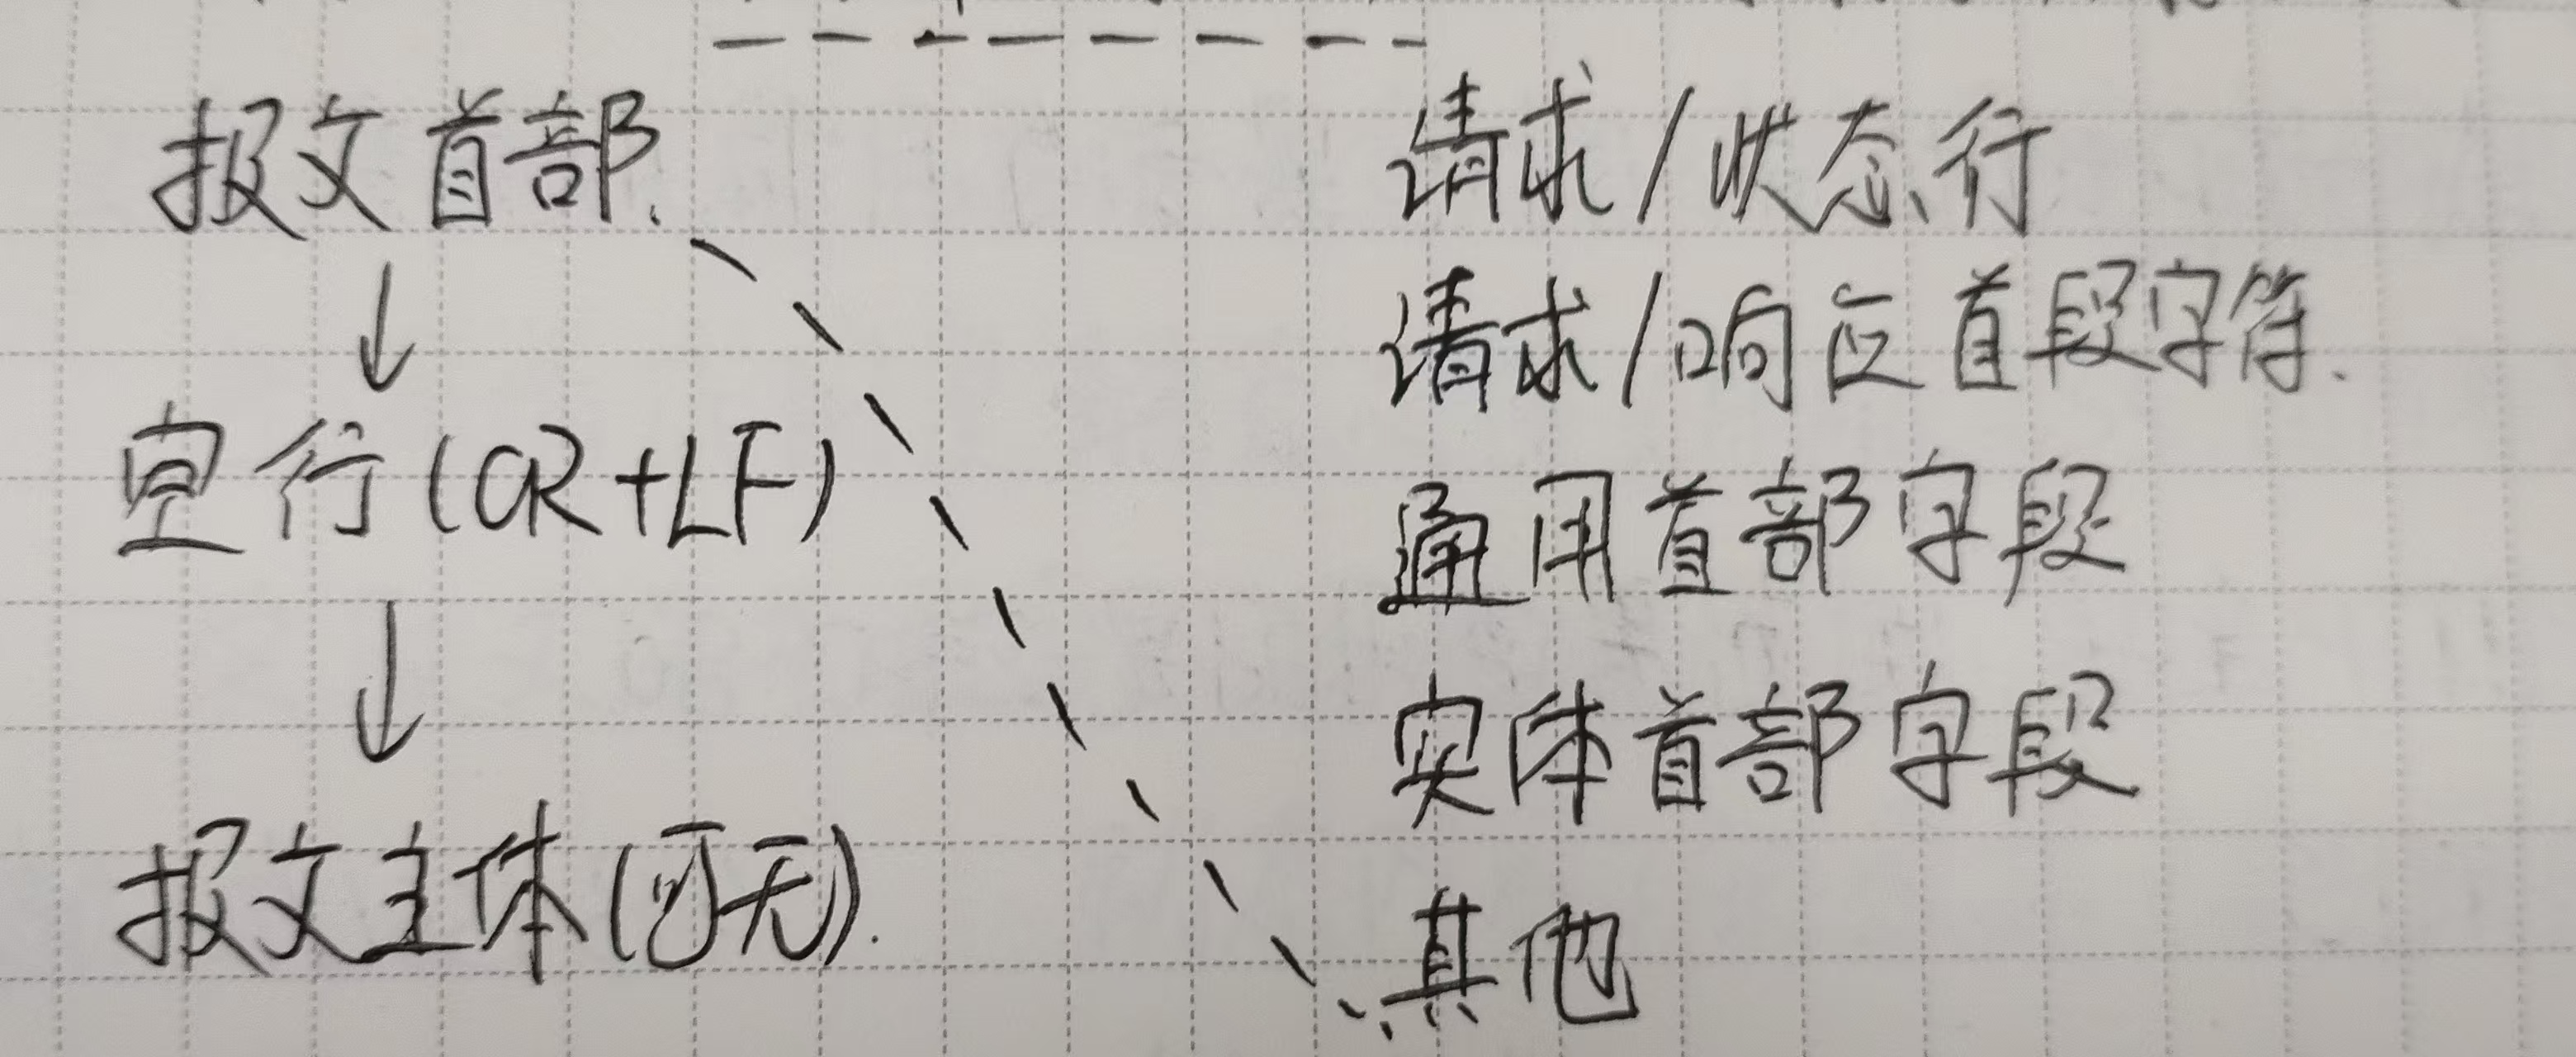 报文首部.
↓
空行(CR+LF)
↓
报文主体(可无).
请求/状态行
请求/响应首段字符.
通用首部字段
实体首部字段
其他